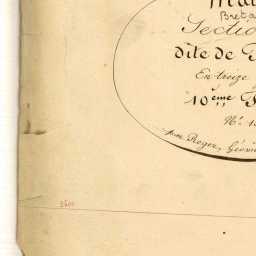 Breta
Section
dite de
En treize
10ème F
N°. 1
par Roger, Géom
2600